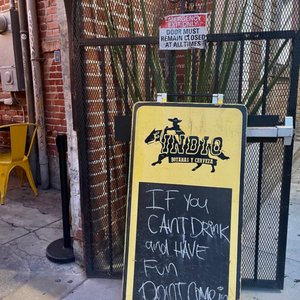 EMERGENCY
EXIT ONLY
DOOR MUST
REMAIN CLOSED
AT ALL TIMES
INDIO
BOTANAS Y CERVEZA
IF YOU
CAN'T DRINK
and HAVE
FUN
DON'T COME